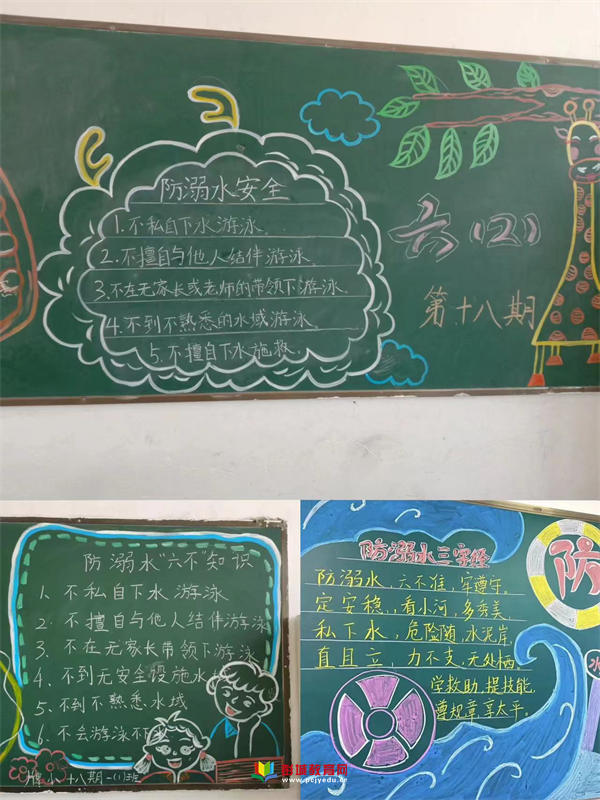 防溺水安全
1.不私自下水游泳。
2.不擅自与他人结伴游泳。
3.不在无家长或老师的带领下游泳。
4.不到不熟悉的水域游泳。
5.不擅自下水施救。
六(2)
第十八期
防溺水“六不”知识
1、不私自下水游泳
2、不擅自与他人结伴游泳
3、不在无家长带领下游泳
4、不到无安全设施水
5、不到不熟悉水域
6、不会游泳不下
小十八期一(1)班
防溺水三字经
防溺水,六不准,牢遵守。
定安稳,看小河,多秀美
私下水,危险随,水泥岸,
直且立,力不支,无处栖
学救助,提技能,
遵规章,享太平。
防
水
教育网
www.pcjyedu.cn